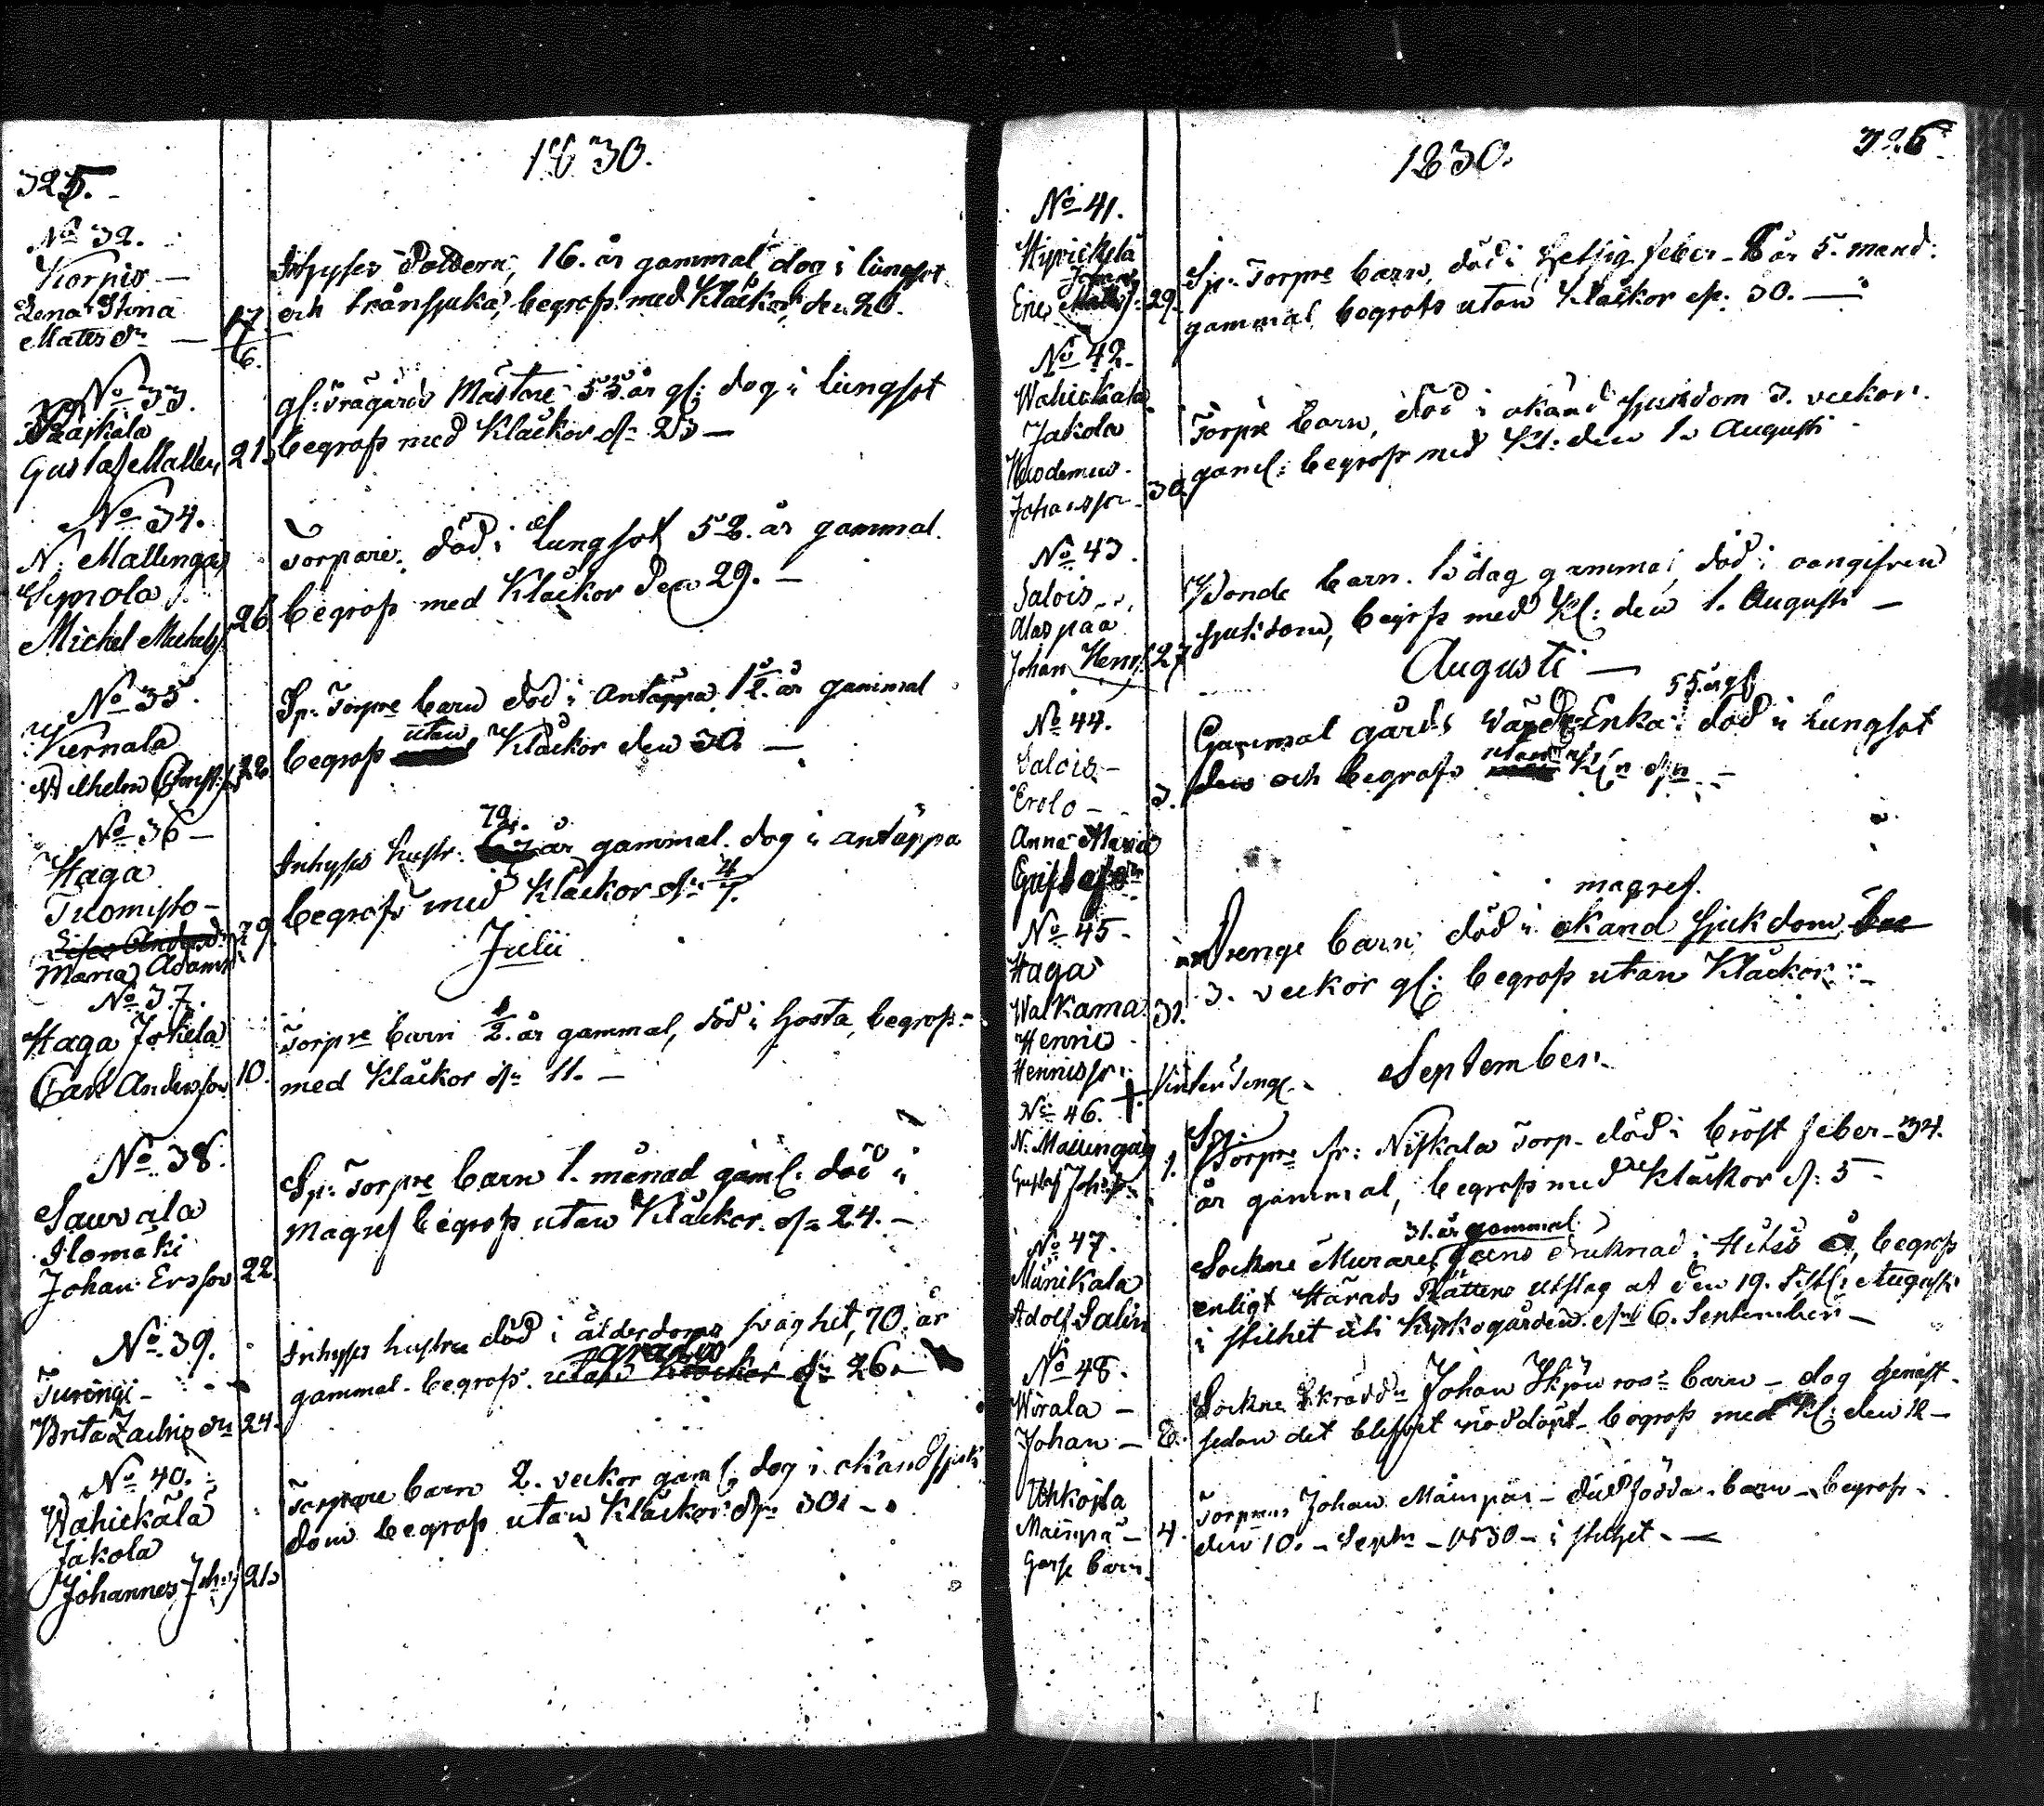 325.
1830.
No 32.
Korpis
Lena Stina
Mats dr 17/6.
Inhyses Dottern, 16. år gammal dog i lungsot
och trånsjuka, begrofs. med Klåckor, den 20.
No 33.
Gustaf Mallen 21.
gl: Trägårds Mästare 55 år gl: dog i lungsot
begrofs med Klåckor dn 25
No 34.
N: Mallinga
Michel Michels: 26
Torpare. död i Lungsot 52. år gammal.
begrofs med Klåckor Den 29.
No 35.
Kernala
Wilhelm 22
Sp: Torpre barn död i Antäppa 1 1/2. år gammal
begrofs utan Klåckor den 30.
No 36
Haga
Tuomisto
Maria Adams 29
Inhyses hustr: 79. år gammal. dog i antäppa
begrofs med Klåckor dn 4/7.
Julii
No 37.
Haga Jokela
Carl Andersson 10.
Torpre barn 1/2. år gammal, död i hosta, begrofs
med Klåckor dn 11.
No 38.
Sauvala
Ilomäki
Johan Ersson 22
Sp: Torpre barn 1. månad gaml: död i
Magref begrofs utan Klåckor. dn 24.
No 39.
Turengi
Brita Zachris dr 24.
Inhyses hustru död i ålderdoms svaghet, 70. år
gammal. begrofs. utan Klåckor dn 26.
No 40.
Wahickala
Jakola
Johannes Johs: 21.
Torpare barn 2. veckor gaml. dog i okänd sjuk
dom begrofs utan Klåckor dn 30.
326
1830.
No 41.
Eric 29.
Sp: Torpre barn, död i hetsig feber år 5. månd:
gammal begrofs utan Klåckor dn. 30.
No 42.
Wahickala
Jakola
Johansson 30
Torpre barn, död i okänd sjukdom 3. veckor
gaml: begrofs med Kl: den 1. Augusti
No 43.
Salois
Alaspää
Johan Henrs: 27
Bonde barn. 1. dag gammal, död i oangifven
sjukdom, begrfs med Kl: den 1. Augusti
Augusti
No 44.
Salois
Erola 3.
Anna Maria
Gustafs dr
55. år gl
Gammal gårds Enka: död i Lungsot
den och begrafs utan Kl dn
No 45.
Haga
Walkama 31.
Henric
Henrisson
magref.
Drenge barn död i okänd sjukdom
3. veckor gl: begrofs utan Klåckor
September.
No 46.
N: Mallinga
Gustaf Johs: 1.
Sp:
Torpre fr: Niskala Torp. död i bröst feber 34.
år gammal, begrofs med Klåckor d. 5
No 47.
Munikala
Adolf Salin
31. år gammal
Sockne Murare drunknad i å, begrofs
enligt Härads Rättens utslag af den 19. sistl: Augusti
i stillhet uti Kyrkogården. dn 6. September
No 48.
Wirala
Johan 8.
Sockne Skrädd: Johan barn dog genast
sedan det blifvit nöddöpt begrofs med Kl: den 12
Mäinpää 4.
Gosse barn.
Torparens Johan Mäinpää dödfödda barn begrofs
den 10. Septr 1830 i stillhet